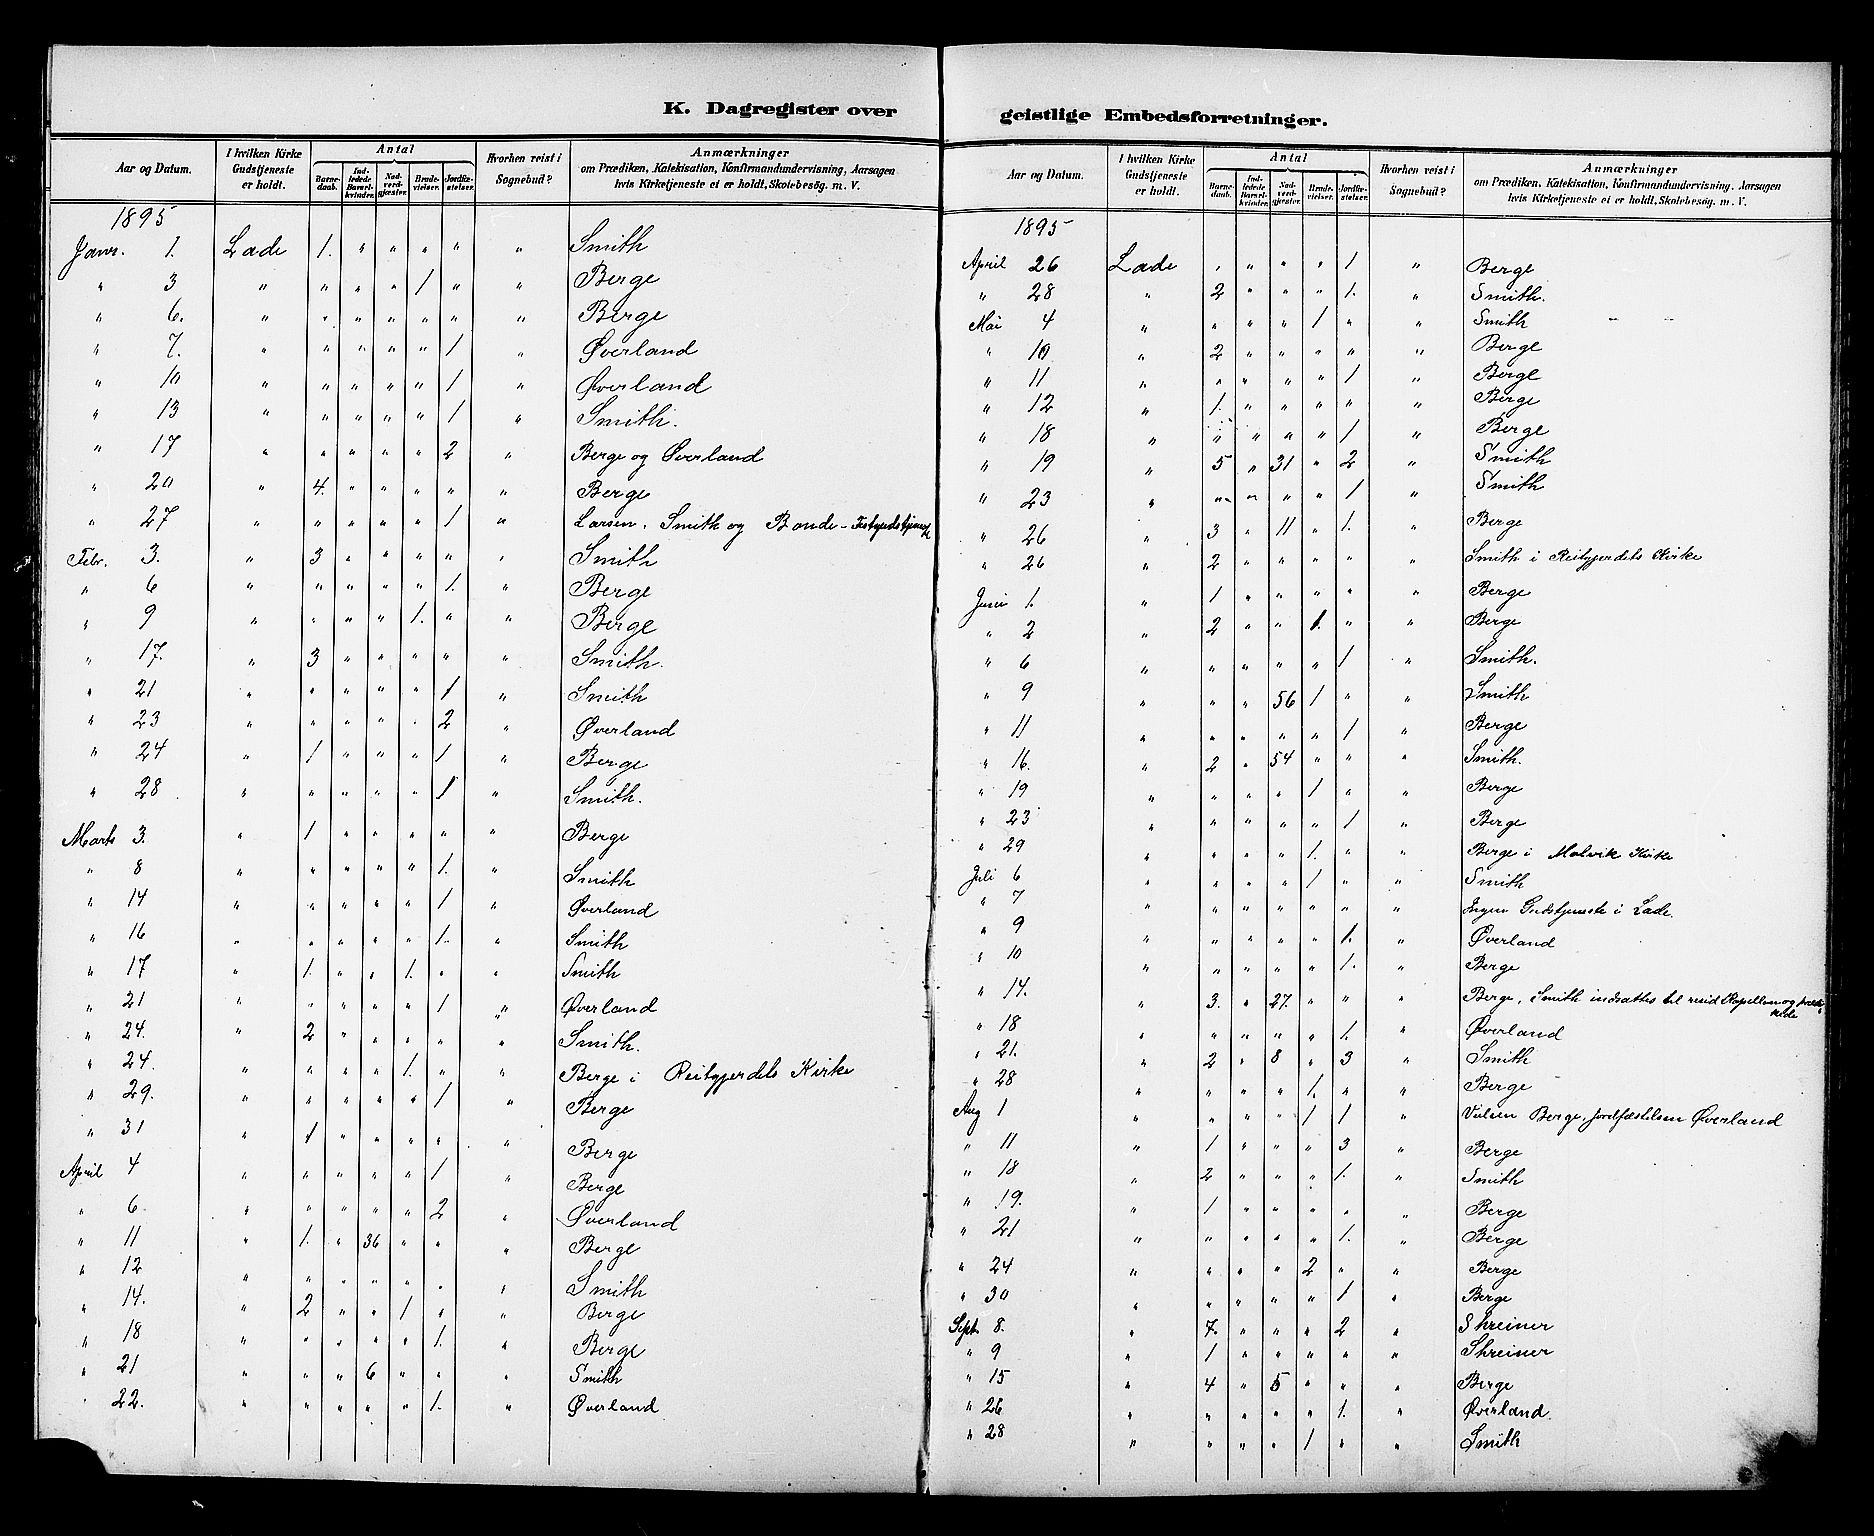 K. Dagregister over
Aar og Datum. I hvilken Kirke Gudstjeneste er holdt. Antal Barnedaab. Indledede Barselkvinder. Nadverdgjester. Brudevielser. Jordfæstelser. Hvorhen reist i Sognebud? Anmærkninger om Prædiken, Katekisation, Konfirmandundervisning, Aarsagen hvis Kirketjeneste ei er holdt, Skolebesög. m. V.
1895
Janr. 1. Lade 1. " " " " " Smith
" 3 " " " " 1 " " Berge
" 6. " " " " " " " Berge
" 7. " " " " " 1 " Øverland
" 10 " " " " " 1 " Øverland
" 13 " " " " " 1 " Smith.
" 17 " " " " " 2 " Berge og Øverland
" 20 " 4. " " " " " Berge
" 27 " " " " " 1 " Larsen, Smith og Bonde -
Febr. 3. " 3 " " " " " Smith
" 6 " " " " " 1. " Berge
" 9 " " " " 1. " " Berge
" 17. " 3 " " " " " Smith.
" 21 " " " " " 1 " Smith
" 23 " " " " " 2 " Øverland
" 24 " 1 " " " 1 " Berge
" 28 " " " " " 1 " Smith.
Marts 3. " 1 " " " " " Berge
" 8 " " " " " 1. " Smith
" 14 " " " " " 1 " Øverland
" 16 " " " " " 1. " Smith
" 17 " 1. " " 1. " " Smith
" 21 " " " " " 1 " Øverland
" 24. " 2 " " " " " Smith.
" 24. " " " " 1. " " Berge i Reitgjerdets Kirke
" 29. " " " " " 1 " Berge
" 31 " 1 " " " " " Berge
April 4 " " " " " 1 " Berge
" 6. " " " " " 2 " Øverland
" 11 " 1. " 36 " " " Berge
" 12 " " " " " " " Smith
" 14. " 2 " " 1 " " Berge
" 18 " " " " " 1. " Berge
" 21 " " " 6 " " " Smith
" 22. " " " " " 1. " Øverland
geistlige Embedsforretninger.
Aar og Datum. I hvilken Kirke Gudstjeneste er holdt. Antal Barnedaab. Indledede Barselkvinder. Nadverdgjester. Brudevielser. Jordfæstelser. Hvorhen reist i Sognebud? Anmærkninger om Prædiken, Katekisation, Konfirmandundervisning, Aarsagen hvis Kirketjeneste ei er holdt, Skolebesög. m. V.
1895
April 26 Lade " " " " 1 " Berge
" 28 " 2 " " " 1. " Smith.
Mai 4 " " " " 1 " " Smith
" 10 " 2 " " " " " Berge
" 11 " " " " " 1 " Berge
" 12 " 1. " " " " " Berge
" 18 " " " " " 1 " Berge
" 19 " 5 " 31 " 2 " Smith
" 23 " " " " " 1 " Smith
" 26 " 3 " 11 " 1. " Berge
" 26 " 2 " " " " " Smith i Reitgjerdets Kirke
Juni 1. " 1 " " " " " Berge
" 2 " 2 " " 1. " " Berge
" 6 " " " " " 1 " Smith.
" 9 " " " 56 1 " " Smith
" 11 " " " " " 1 " Berge
" 16. " 2 " 54 " " " Smith.
" 19 " " " " 1 " " Berge
" 23 " " " " " 1 " Berge
" 29 " " " " 1. " " Berge i Malvik Kirke
Juli 6 " " " " 1 " " Smith
" 7 " " " " " " " Ingen Gudstjeneste i Lade.
" 9 " " " " " 1. " Øverland
" 10 " " " " " 1. " Berge
" 14. " 3. " 27. " " " Berge, Smith indsattes til resid Kapellan og
" 18 " " " " " 1. " Øverland
" 21. " 2 " 8 " 3 " Smith
" 28 " " " " 1. " " Berge
Aug 1 " " " " 1 1 " Vielsen Berge, Jordfæstelsen Øverland
" 11 " 1 " " " 3 " Berge
" 18 " 2 " " " 1. " Smith
" 19. " 1 " " " " " Berge
" 21 " " " " " 1. " Berge
" 24 " " " " 2 " " Berge
" 30 " " " " " 1 " Berge
Sept. 8. " 7. " " " 2 " Shreiner
" 9 " 1 " " " " " Shreiner
" 15 " 4 " 5 " " " Berge
" 26 " " " " " 1. " Øverland.
" 28 " " " " 1 " " Smith